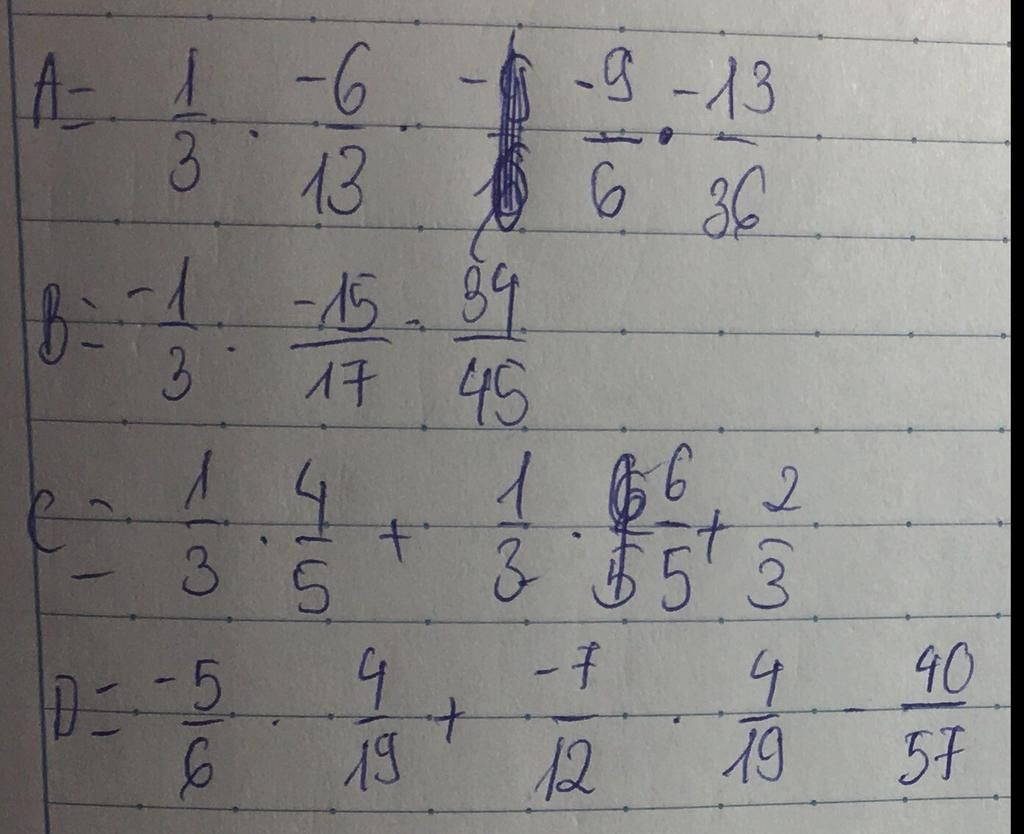 A = 1/3 . -6/13 . -9/6 . -13/36
B = -1/3 . -15/17 . 34/45
C = 1/3 . 4/5 + 1/3 . 6/5 + 2/3
D = -5/6 . 4/19 + -7/12 . 4/19 - 40/57